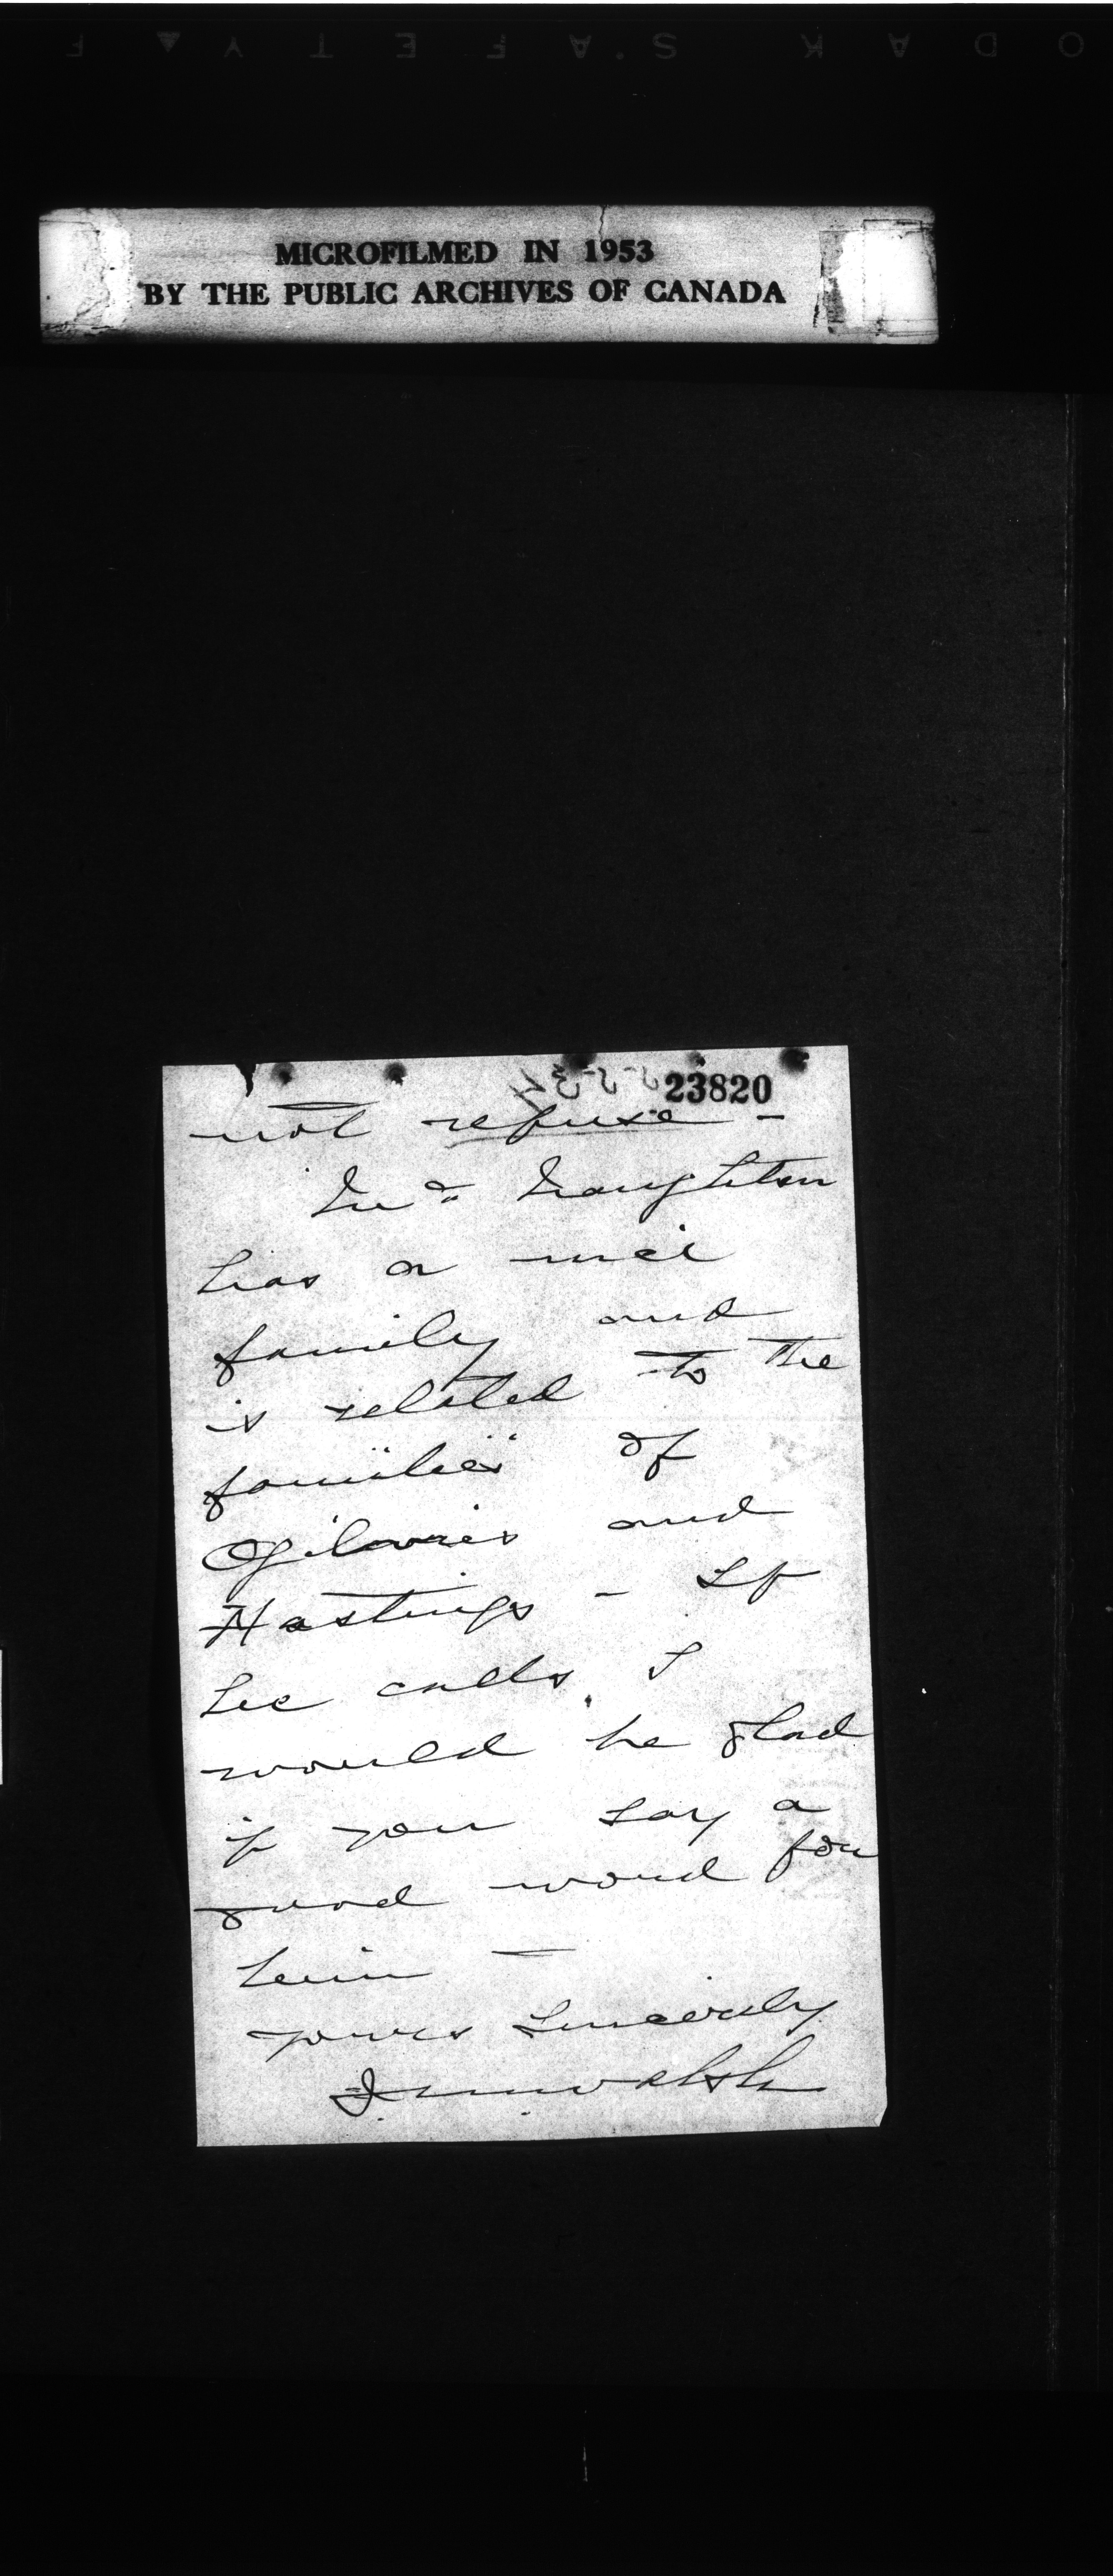 MICROFILMED IN 1953
BY THE PUBLIC ARCHIVES OF CANADA
23820
not refuse -
Mr Naughton
has a nice
family and
is related to the
families of
Ogilvies and
Hastings - If
he calls, I
would be glad
if you say a
good word for
him -
yours sincerely
J M Walsh